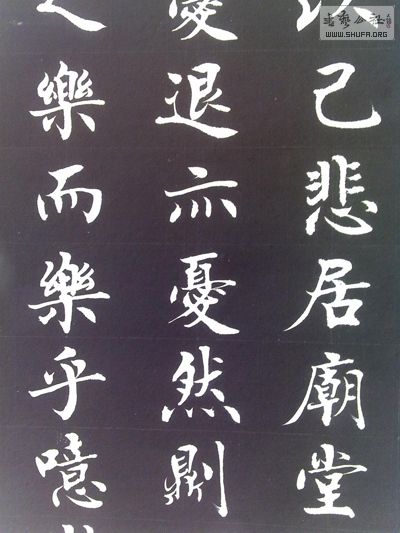 以己悲居廟堂
憂退亦憂然則
之樂而樂乎噫
书艺公社
WWW.SHUFA.ORG